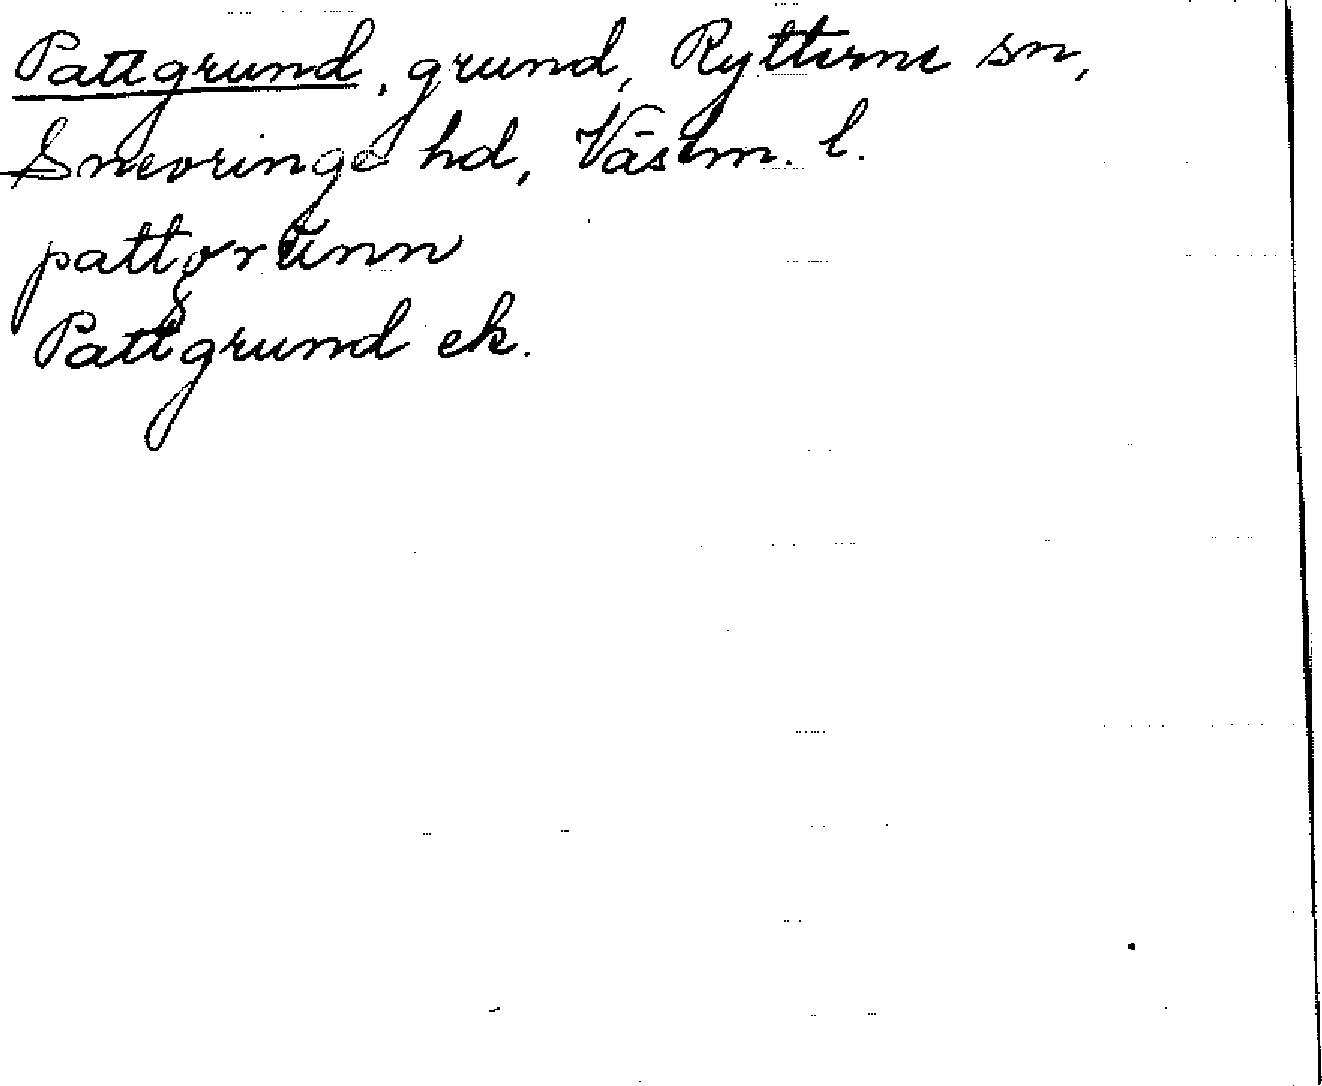 Pattgrund, grund, Rytterne sn,
Snevringe hd, Västm. l.
pattgrunn
Pattgrund ek.